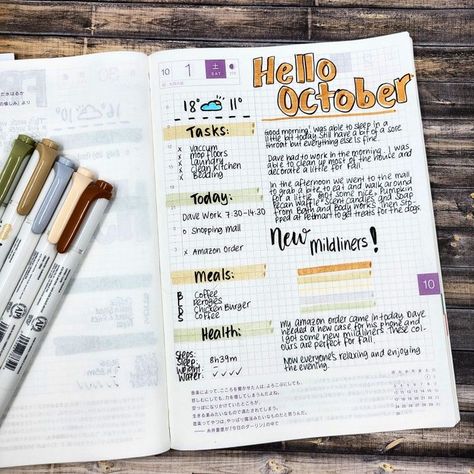 10
1
土
SAT
Hello
October
18° 11°
Tasks:
x Vaccum
x mop floors
x laundry
x Clean Kitchen
x Bedding
Today:
Dave Work 7:30-14:30
o Shopping mall
x Amazon Order
Meals:
B Coffee
B perogies
S Chicken Burger
S Coffee
Health:
Steps:
Sleep: 8h39m
Weight:
Water:
Good morning! was able to sleep in a
little bit today. Still have a bit of a sore
throat but everything else is fine.
Dave had to work in the morning. I was
able to clean up most of the house and
decorate a little for fall.
In the afternoon we went to the mall
to grab a bite to eat and walk around
for a little. Got some nice Pumpkin
Pecan Waffle scent candles and soap
from Bath and Body works. Then stop-
ped at Petsmart to get treats for the dogs
New Mildliners!
10
My amazon order came in today. Dave
needed a new case for his phone and
I got some new mildliners. These col-
ours are perfect for fall.
Now everyone's relaxing and enjoying
the evening.
音楽によって、こころを動かせた人は、よろこびにしても、
悲しむにしても、力を増してしまうんだよね。
空っぽになりかけていたところが、
生きる楽しみでいっぱいに満たされてしまう。
音楽ってやつは、やっぱり魔法みたいなものだと思うんだ。